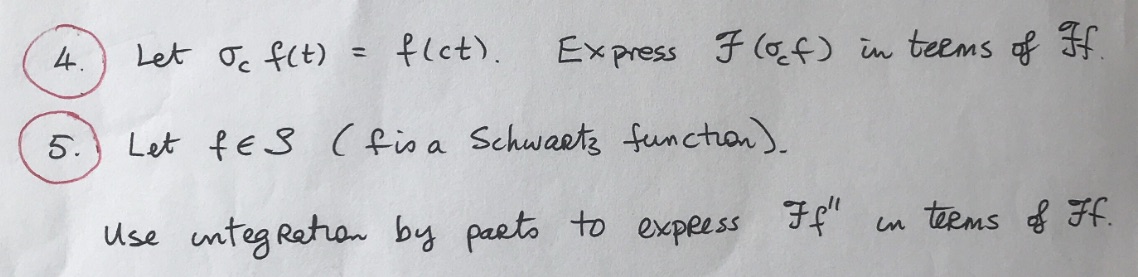 4. Let σ_c f(t) = f(ct). Express ℱ(σ_c f) in terms of ℱf.
5. Let f ∈ S (f is a Schwartz function).
Use integration by parts to express ℱf'' in terms of ℱf.